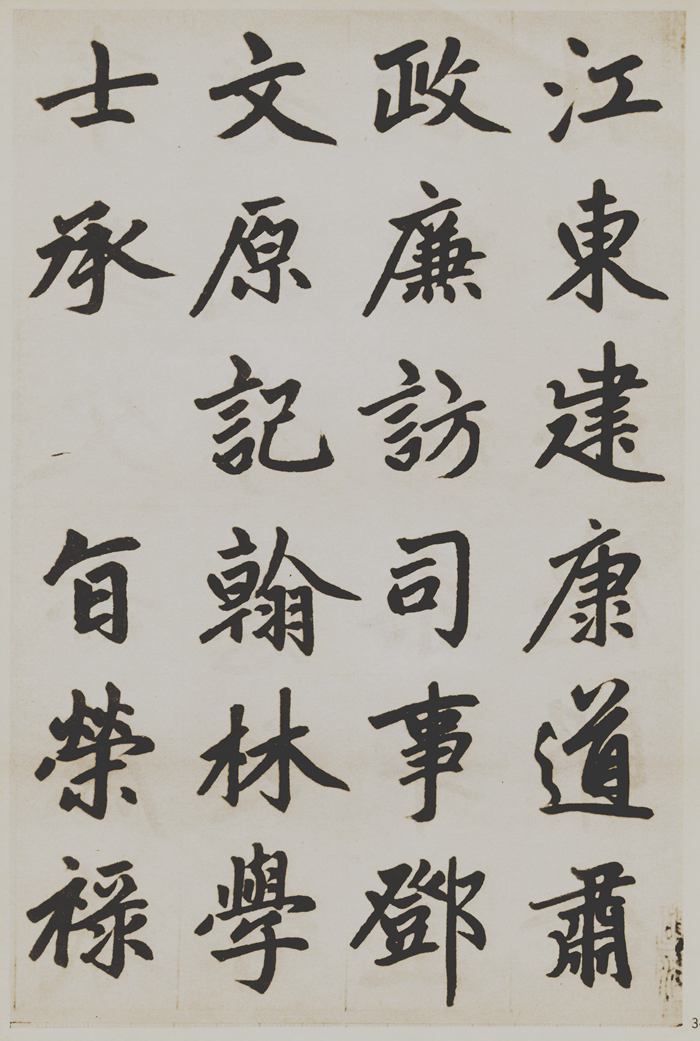 江東建康道肅
政廉訪司事鄧
文原記翰林學
士承 旨榮祿
3